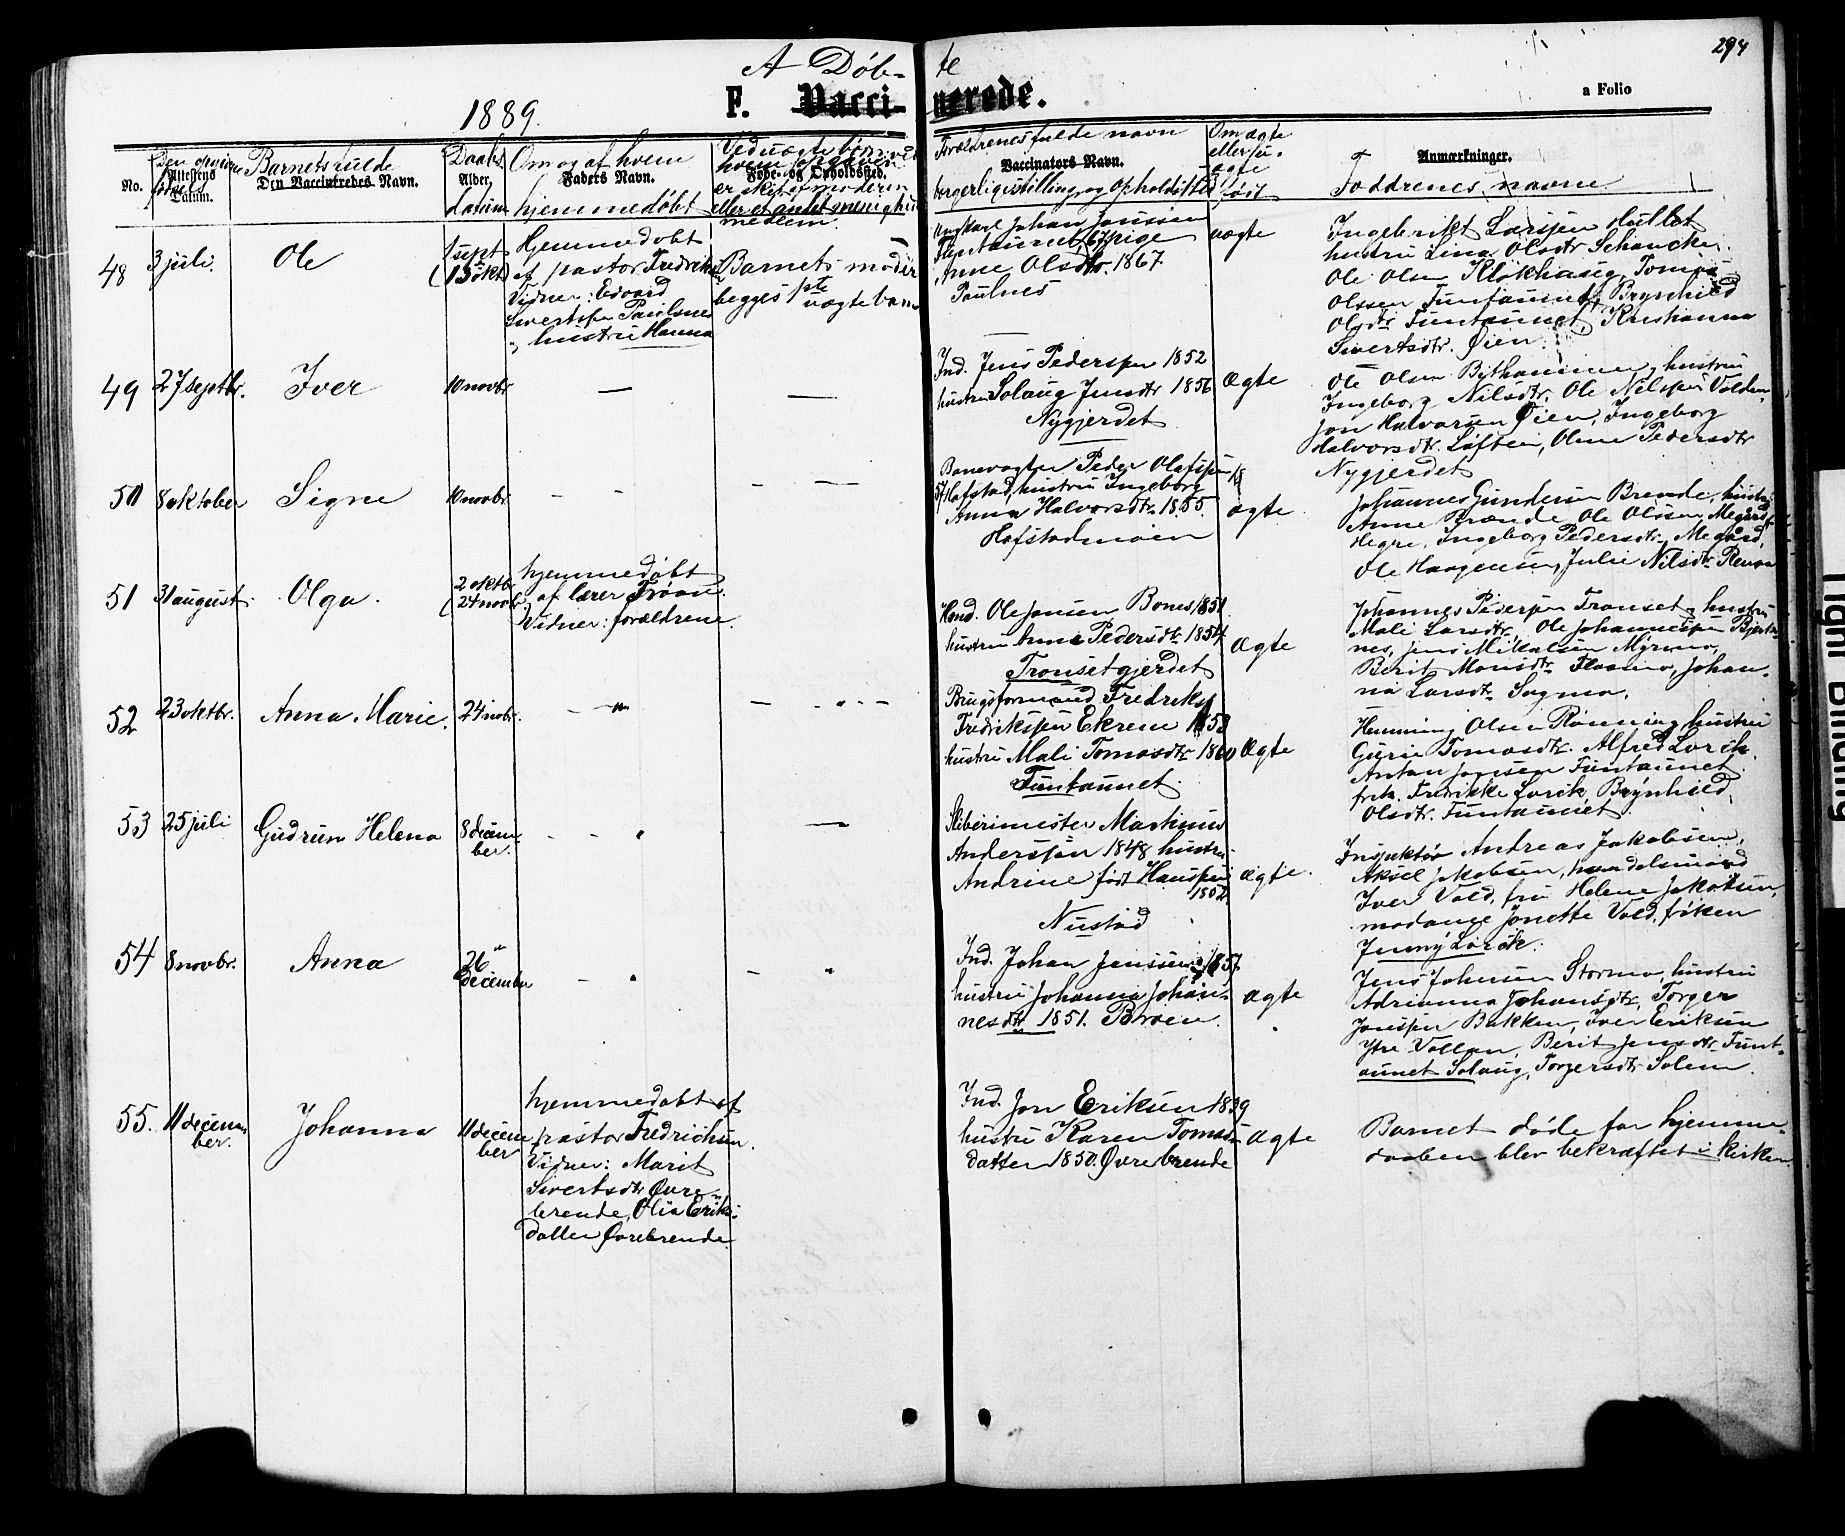 294
A Døb- te
1889.
F. Vacci- nerede.
a Folio
No.
Attestens Datum.
Barnets fulde
Den Vaccineredes Navn.
Daabs
Alder.
datum
Om og af hvem
Faders Navn.
hjemmedøbt
Føde- og Opholdssted.
er skeet af moderen
eller et andet menigheds
medlem.
Forældrenes fulde navn
Vaccinators Navn.
borgerlige stilling og opholdssted
Om ægte
eller u-
ægte
født
Anmærkninger.
Faddrenes navne
48 3 juli. Ole
1 sept
(13 okt)
Hjemmedøbt
af pastor Fredriksen
Vidner: Edvard
Sivertsen Paulsnes
hustru Hanna
Barnets moder
begges 1ste uægte barn
Ungkarl Johan Janssen
Funtaunet & pige
Anne Olsdtr. 1867.
Paulnes
uægte
Ingebrikt Larssen Hullet
hustru Lina Olsdtr Schancke.
Ole Olsen Klokhaug, Tomas
Olssen Funtaunet, Brynhild
Olsdtr Funtaunet, Kristianna
Sivertsdtr. Øien.
49 27 septbr. Iver
10 novbr
Ind. Jens Pederssen 1852
hustru Solaug Jensdtr 1856
Nygjerdet
Ægte
Ole Olsen Bythammer, hustru
Ingeborg Nilsdtr. Ole Nilssen Volden
Jon Halvorsen Øien, Ingeborg
Halvorsdtr. Løften, Oline Pedersdtr
Nygjerdet
50 8 oktober Signe
10 novbr.
Banevogter Peder Olafssen 18
57 Hofstad, hustru Ingeborg
Anna Halvorsdtr. 1855.
Hofstadmoen
ægte.
Johannes Gundersen Brende, hustru
Anne Brænde, Ole Olssen Megård
Hegre, Ingeborg Pedersdtr Megård,
Ole Haagensen, Julie Nilsdtr Renaa
51 31 august. Olga.
2 oktbr
(24 novbr.
hjemmedøbt
af lærer Trøan.
Vidner: forældrene.
Hand. Ole Jonsen Bones 1851.
hustru Anne Pedersdtr 1854.
Tronsetgjerdet
Ægte
Johannes Pedersen Tronset, hustru
Mali Larsdtr, Ole Johannessen Bjerk
nes, Jens Mikalsen Myrmo,
Berit Monsdtr Flaamo, Johan-
na Larsdtr Sagmo.
52 23 oktbr. Anna Marie.
24 nobr.
Brugsformand Fredrik
Fredrikssen Ekrem 1853
hustru Mali Tomasdtr 1860
Funtaunet.
Ægte
Henning Olsen Rønning, hustru
Gurie Tomasdtr. Alfred Lorck.
Anton Jonsen Funtaunet
frk. Fredrikke Lorck, Brynhild
Olsdtr. Funtaunet.
53 25 juli Gudrun Helena
8 decem-
ber.
Sliberimester Martinus
Anderssen 1848 hustru
Andrine født Hanssen
1852.
Nustad
ægte.
Inspektør Andreas Jakobsen,
Aksel Jakobsen, handelsmand
Iver Vold, fru Helene Jakobsen,
madame Jonette Vold, frøken
Jenny Lorck.
54 8 novbr. Anna
26
december
Ind. Johan Janssen 1857
hustru Johanna Johan-
nesdtr 1851. Broen.
ægte
Jens Johnsen Stormo, hustru
Adrianna Johansdtr, Torger
Jonssen Bakken, Iver Eriksen
Ytre Vollan, Berit Jensdtr Funt-
aunet Solaug Torgersdtr Solem.
55. 11 decem-
ber. Johanna
11 decem
ber
hjemmedøbt af
pastor Fredrichsen.
Vidner: Marit
Sivertsdtr Øvre-
brende, Olia Eriks-
datter Øvrebrende.
Ind. Jon Eriksen 1839
hustru Karen Tomas-
datter 1850. Øvre brende
Ægte
Barnet døde før hjemme-
daaben blev bekræftet i kirken.